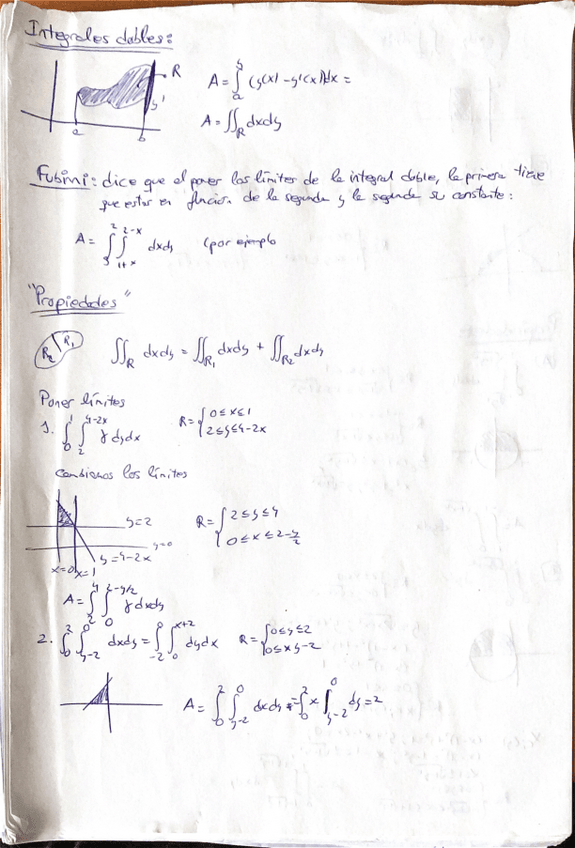 Integrales dobles:
R
y'
a
b
A = ∫_a^b (y(x) - y'(x))dx =
A = ∬_R dxdy
Fubini: dice que al poner los límites de la integral doble, la primera tiene
que estar en función de la segunda y la segunda ser constante:
A = ∫^2 ∫_{1+x}^{2-x} dxdy (por ejemplo
"Propiedades"
R2 R1
∬_R dxdy = ∬_{R1} dxdy + ∬_{R2} dxdy
Poner límites
1. ∫_0^1 ∫_2^{4-2x} dydx R = { 0 ≤ x ≤ 1
2 ≤ y ≤ 4-2x
Cambiamos los límites
y=2
y=0
y=4-2x
x=0 x=1
R = { 2 ≤ y ≤ 4
0 ≤ x ≤ 2 - y/2
A = ∫_2^4 ∫_0^{2-y/2} dxdy
2. ∫_0^2 ∫_{y-2}^0 dxdy = ∫_{-2}^0 ∫_0^{x+2} dydx R = { 0 ≤ y ≤ 2
0 ≤ x y-2
A = ∫_0^2 ∫_{y-2}^0 dxdy = ∫_0^2 x |_{y-2}^0 dy = 2